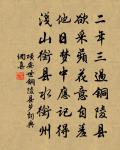 二年三過銅陵縣
欲采蘋花意自羞
他日夢中應記得
淺山銜縣水銜州
項安世銅陵縣